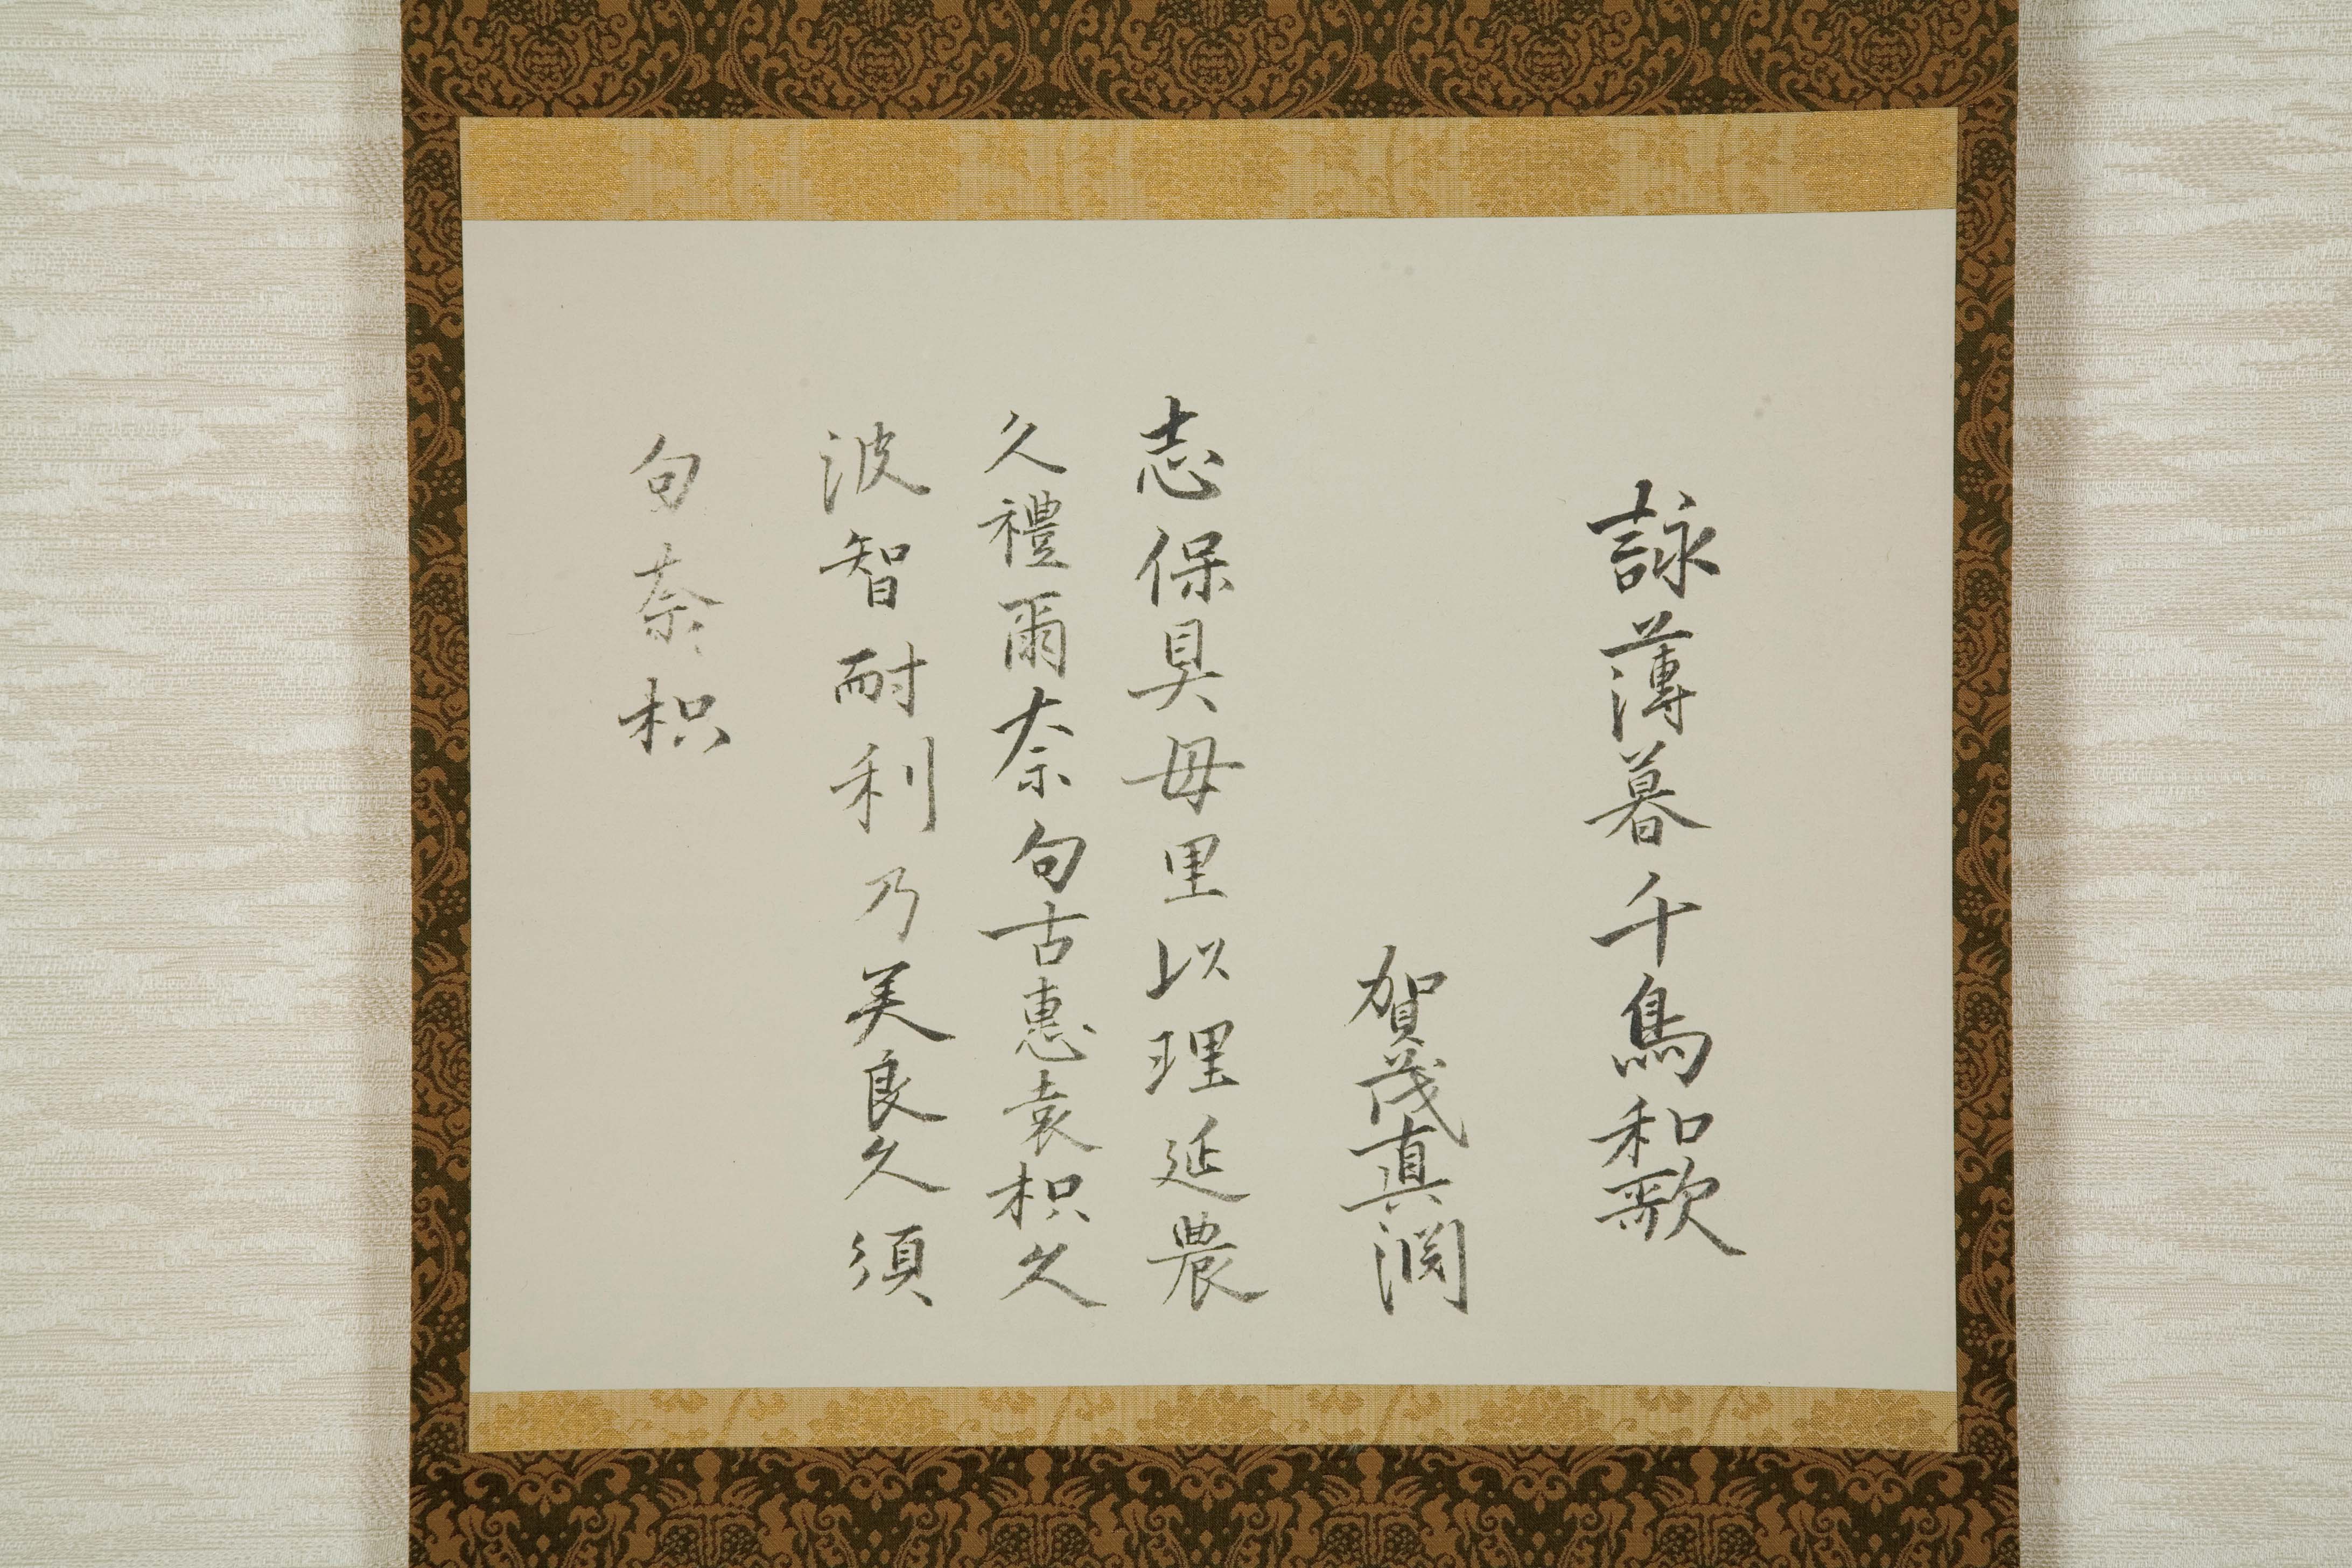 詠薄暮千鳥和歌
賀茂真淵
志保具母里以理延農
久禮爾奈句古惠袁枳久
波智耐利乃美良久須
句奈枳